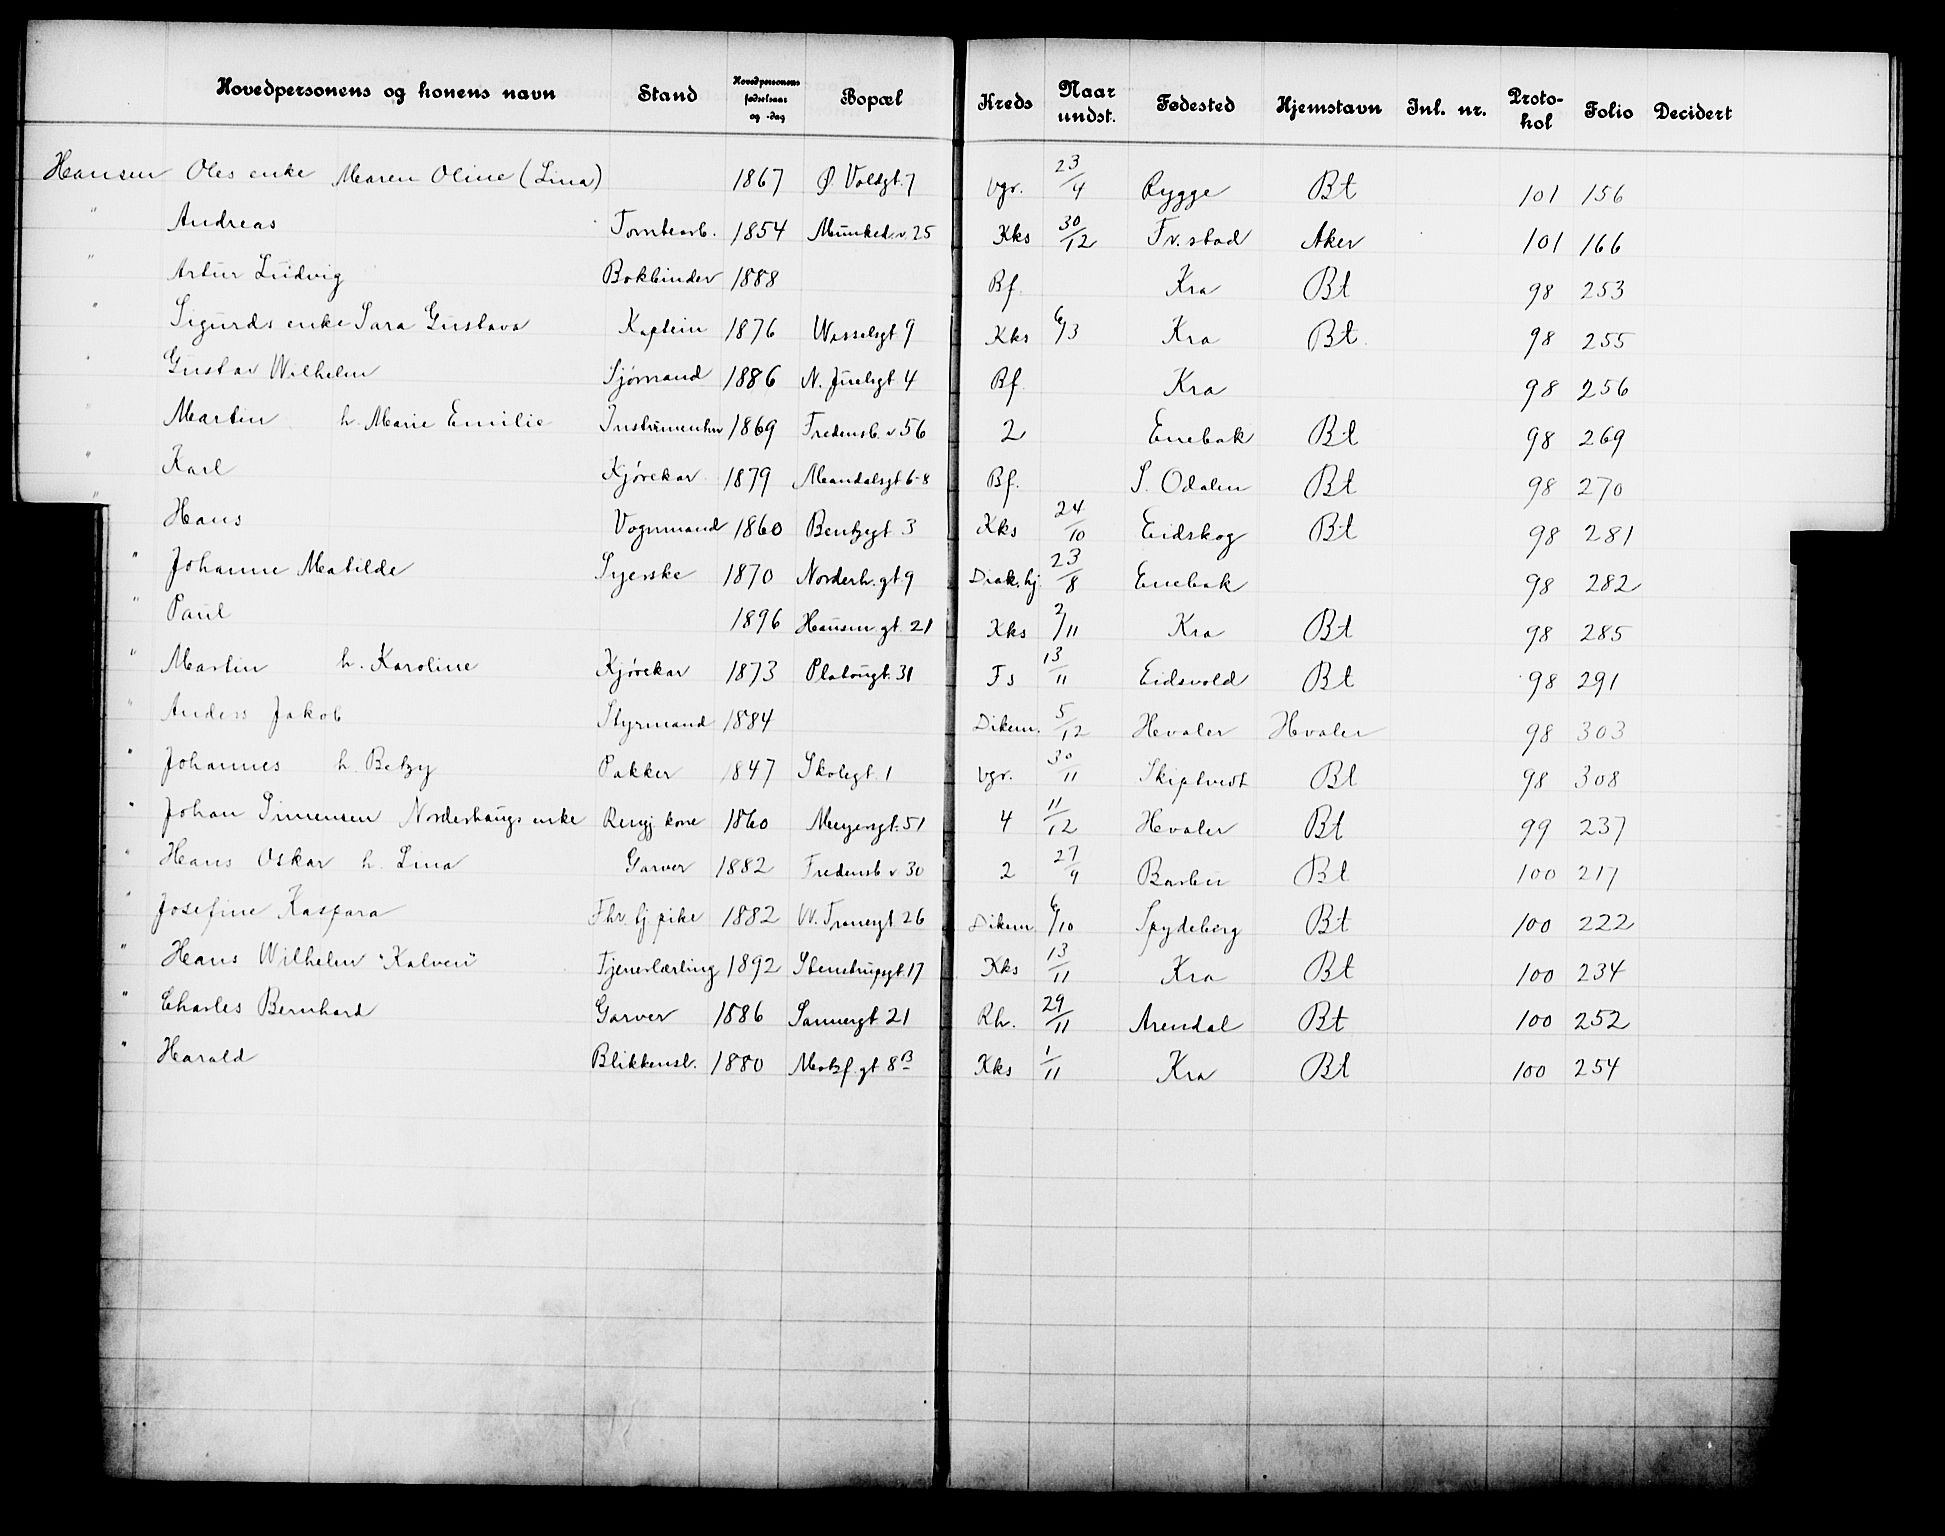 Hovedpersonens og konens navn Stand Hovedpersonens fødselsaar og -dag Bopæl Kreds Naar undst. Fødested Hjemstavn Inl. nr. Protokol Folio Decidert
Hansen Oles enke Maren Oline (Lina) 1867 Ø. Voldgt. 7 Vgr. 23/4 Rygge Bt 101 156
" Andreas Tomtearb. 1854 Munked.v. 25 Kks 30/12 Fr.stad Aker 101 166
" Artur Ludvig Bokbinder 1888 Bf. Kra Bt 98 253
" Sigurds enke Sara Gustava Kaptein 1876 Wesselsgt 9 Kks 6/3 Kra Bt. 98 255
" Gustav Wilhelm Sjømand 1886 N. Juelsgt 4 Bf. Kra 98 256
" Martin h. Marie Emilie 1869 Fredensb. v 56 2 Enebak Bt 98 269
" Karl Kjørekar 1879 Mandalsgt 6-8 Bf. S. Odalen Bt 98 270
" Hans Vognmand 1860 Bentzegt 3 Kks 24/10 Eidskog Bt 98 281
" Johanne Matilde Syerske 1870 Norderh.gt 9 Diak. hj. 23/8 Enebak 98 282
" Paul 1896 Hausm.gt. 21 Kks 2/11 Kra Bt 98 285
" Martin h. Karoline Kjørekar 1873 Platougt. 31 Fs 13/11 Eidsvold Bt 98 291
" Anders Jakob Styrmand 1884 Dikem. 5/12 Hvaler Hvaler 98 303
" Johannes h. Betzy Pakker 1847 Skolegt. 1 Vgr. 30/11 Skiptvedt Bt 98 308
" Johan Simensen Norderhaugs enke Rengj kone 1860 Meyersgt. 51 4 11/12 Hvaler Bt 99 237
" Hans Oskar h. Lina Garver 1882 Fredensb v 30 2 27/9 Barbu Bt 100 217
" Josefine Kaspara Fhv. hj pike 1882 W. Tranesgt 26 Dikem 6/10 Spydeberg Bt 100 222
" Hans Wilhelm "Kalven" Tjenerlærling 1892 Stenstrupsgt. 17 Kks 13/11 Kra Bt 100 234
" Charles Bernhard Garver 1886 Sannergt 21 Rh. 29/11 Arendal Bt 100 252
" Harald Blikkensl. 1880 Motzf.gt 8B Kks 1/11 Kra Bt 100 254